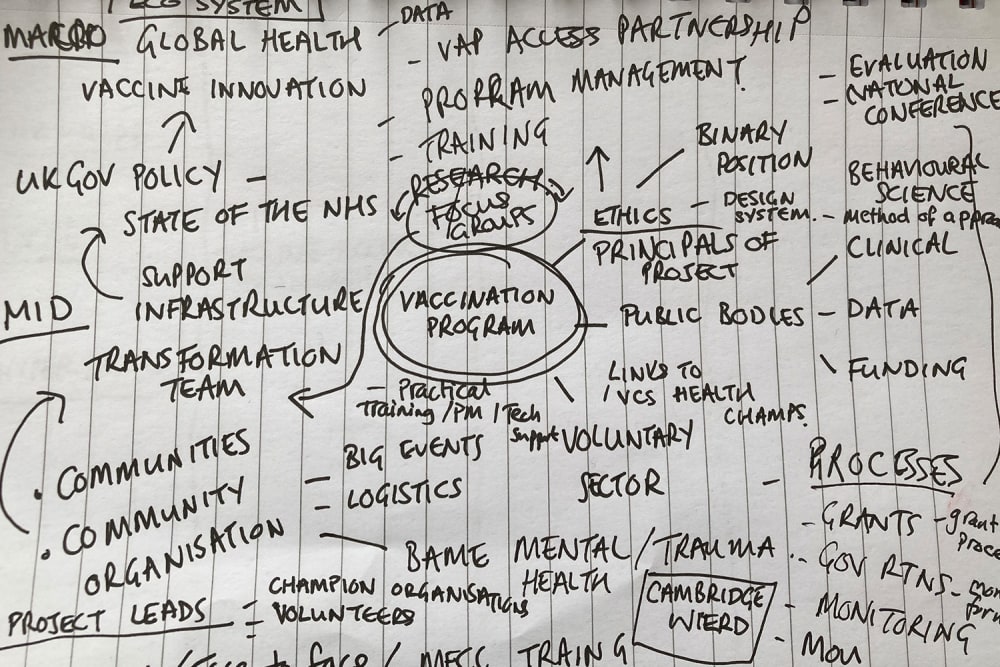 ECO SYSTEM
MACRO GLOBAL HEALTH - DATA
- VAP ACCESS PARTNERSHIP
VACCINE INNOVATION
PROGRAM MANAGEMENT
- EVALUATION
- NATIONAL
CONFERENCE
- TRAINING
BINARY
POSITION
UK GOV POLICY -
RESEARCH
FOCUS
GROUPS
BEHAVIOURAL
SCIENCE
STATE OF THE NHS
ETHICS - DESIGN
SYSTEM. - method of
PRINCIPALS OF
PROJECT
CLINICAL
SUPPORT
INFRASTRUCTURE
MID
VACCINATION
PROGRAM
PUBLIC BODIES - DATA
TRANSFORMATION
TEAM
FUNDING
- Practical
Training / PM / Tech
Support
LINKS TO
/ VCS HEALTH
CHAMPS.
VOLUNTARY
SECTOR
• COMMUNITIES
- BIG EVENTS
- LOGISTICS
• COMMUNITY
ORGANISATION
- PROCESSES
- GRANTS - grant
BAME MENTAL / TRAUMA
HEALTH
- GOV RTNS -
PROJECT LEADS - CHAMPION ORGANISATIONS
- VOLUNTEERS
CAMBRIDGE
WIERD
- MONITORING
- MOU
/ face to face / MECC TRAINING